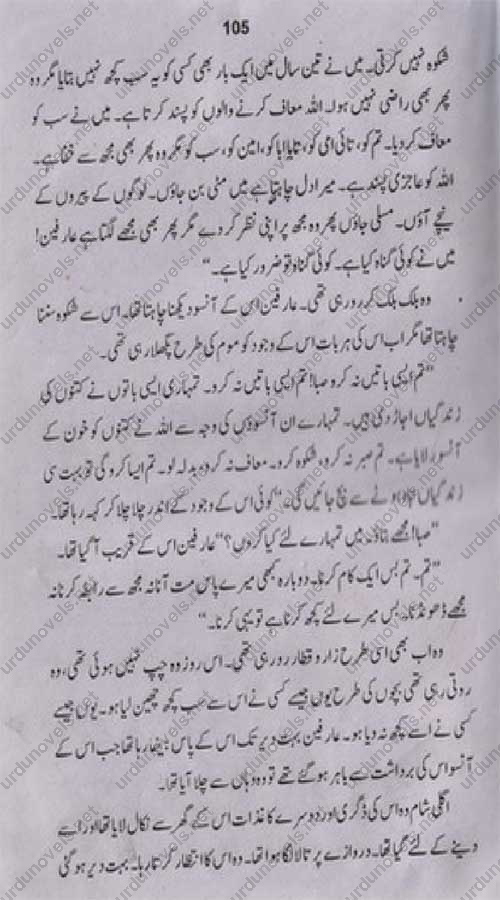 105
شکوہ نہیں کرتی۔ میں نے تین سال میں ایک بار بھی کسی کو یہ سب کچھ نہیں بتایا مگر وہ
پھر بھی راضی نہیں ہوا۔ اللہ معاف کرنے والوں کو پسند کرتا ہے۔ میں نے سب کو
معاف کر دیا۔ تم کو، تائی امی کو، تایا ابا کو، امین کو، سب کو مگر وہ پھر بھی مجھ سے خفا ہے۔
اللہ کو عاجزی پسند ہے۔ میرا دل چاہتا ہے میں مٹی بن جاؤں۔ لوگوں کے پیروں کے
نیچے آؤں۔ مسلی جاؤں پھر وہ مجھ پر اپنی نظر کر دے مگر پھر بھی مجھے لگتا ہے عارفین!
میں نے کوئی گناہ کیا ہے۔ کوئی گناہ تو ضرور کیا ہے۔“
وہ بلک بلک کر رو رہی تھی۔ عارفین اس کے آنسو دیکھنا چاہتا تھا۔ اس سے شکوہ سننا
چاہتا تھا مگر اب اس کی ہر بات اس کے وجود کو موم کی طرح پگھلا رہی تھی۔
”تم ایسی باتیں نہ کرو صبا! تم ایسی باتیں نہ کرو۔ تمہاری ایسی باتوں نے کتنوں کی
زندگیاں اجاڑ دی ہیں۔ تمہارے ان آنسوؤں کی وجہ سے اللہ نے کتنوں کو خون کے
آنسو رلایا ہے۔ تم صبر نہ کرو، شکوہ کرو۔ معاف نہ کرو، بدلہ لو۔ تم ایسا کرو گی تو بہت سی
زندگیاں تباہ ہونے سے بچ جائیں گی۔“ کوئی اس کے وجود کے اندر چلا چلا کر کہہ رہا تھا۔
”صبا! مجھے بتاؤ، میں تمہارے لئے کیا کروں؟“ عارفین اس کے قریب آ گیا تھا۔
”تم۔ تم بس ایک کام کرنا۔ دوبارہ کبھی میرے پاس مت آنا نہ مجھ سے رابطہ کرنا نہ
مجھے ڈھونڈنا۔ بس میرے لئے کچھ کرنا ہے تو یہی کرنا۔“
وہ اب بھی اسی طرح زار و قطار رو رہی تھی۔ اس روز وہ چپ نہیں ہوئی تھی، وہ
روتی رہی تھی بچوں کی طرح یوں جیسے کسی نے اس سے سب کچھ چھین لیا ہو۔ یوں جیسے
کسی نے اسے کچھ نہ دیا ہو۔ عارفین بہت دیر تک اس کے پاس بیٹھا رہا تھا جب اس کے
آنسو اس کی برداشت سے باہر ہو گئے تھے تو وہ وہاں سے چلا آیا تھا۔
اگلی شام وہ اس کی ڈگری اور دوسرے کاغذات اس کے گھر سے نکال لایا تھا اور اسے
دینے کے لئے گیا تھا۔ دروازے پر تالا لگا ہوا تھا۔ وہ اس کا انتظار کرتا رہا۔ بہت دیر ہو گئی
urdunovels.net